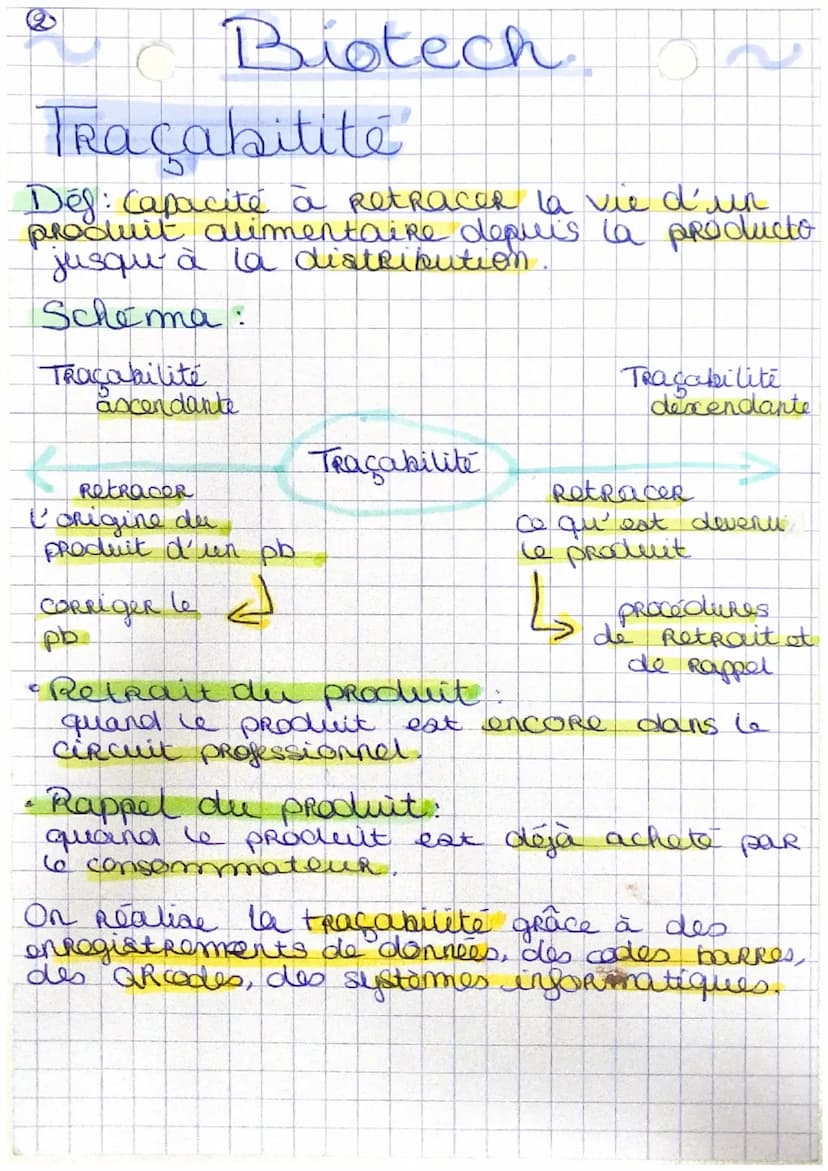 2
Biotech.
Traçabilité
Déf : Capacité à retracer la vie d'un
produit alimentaire depuis la producto
jusqu'à la distribution.
Schéma :
Traçabilité
ascendante
Traçabilité
descendante
Traçabilité
retracer
l'origine du
produit d'un pb
corriger le
pb
retracer
ce qu'est devenu
le produit
procédures
de retrait et
de rappel
• Retrait du produit :
quand le produit est encore dans le
circuit professionnel.
• Rappel du produit :
quand le produit est déjà acheté par
le consommateur.
On réalise la traçabilité grâce à des
enregistrements de données, des codes barres,
des QRcodes, des systèmes informatiques.